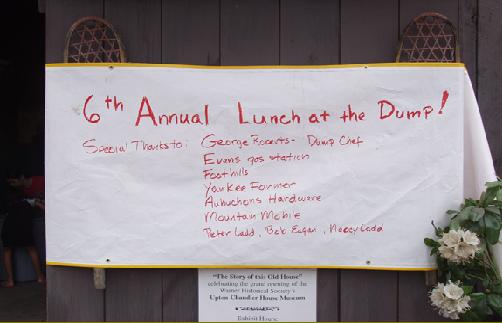 6th Annual Lunch at the Dump!
Special Thanks to: George Roberts - Dump Chef
Evans gas station
Foothills
Yankee Farmer
Aubuchons Hardware
Mountain Mobile
Peter Ladd, Bob Eagan, Ladd
"The Story of this Old House"
celebrating the grand opening of the
Warner Historical Society's
Upton Chandler House Museum
Exhibit House